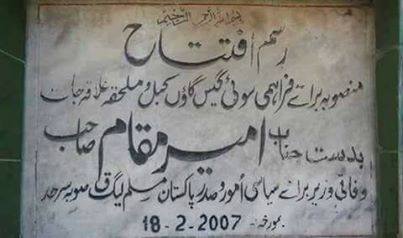 بسم اللہ الرحمن الرحیم
رسم افتتاح
منصوبہ برائے فراہمی سوئی گیس گاؤں کہبل و ملحقہ علاقہ جات
بدست جناب امیر مقام صاحب
وفاقی وزیر برائے سیاسی امور و صدر پاکستان مسلم لیگ ق صوبہ سرحد
بمورخہ 18-2-2007